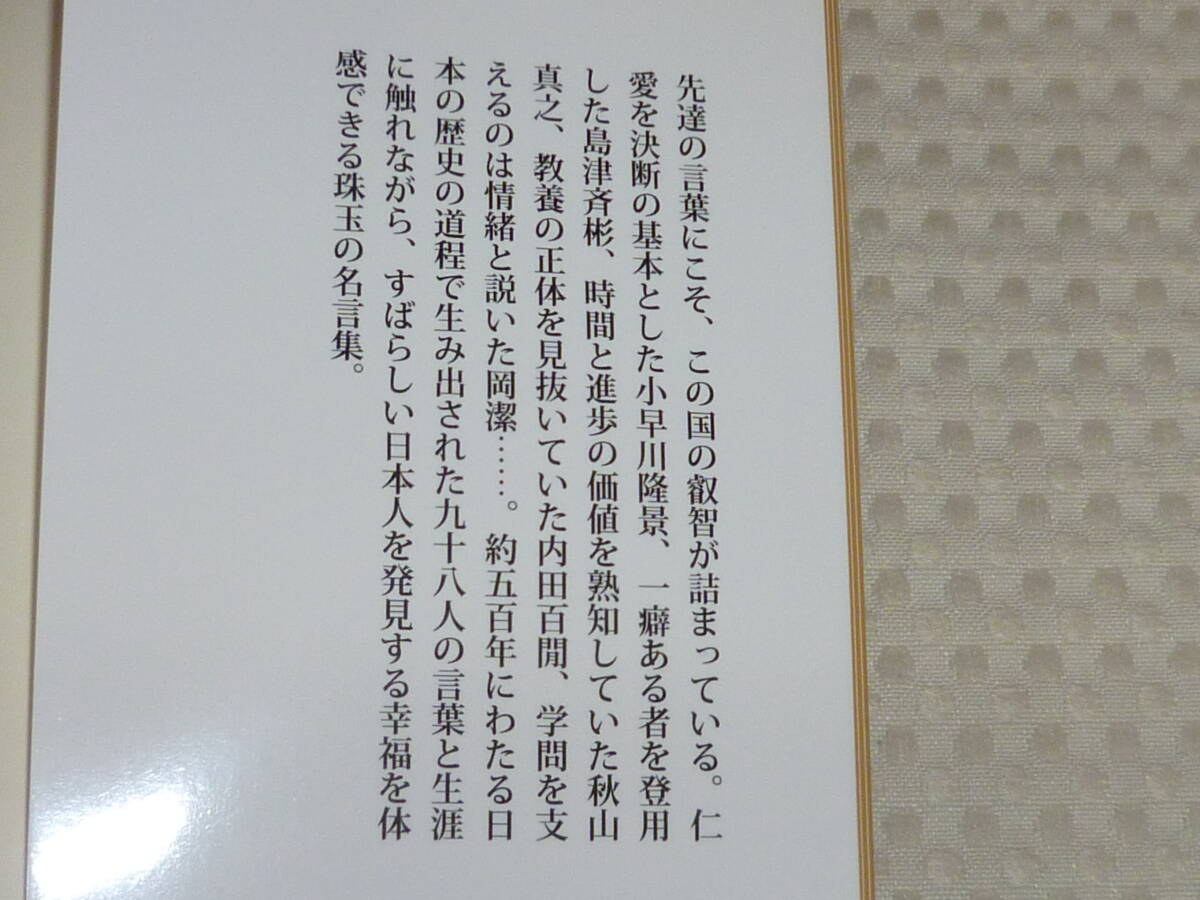 先達の言葉にこそ、この国の叡智が詰まっている。仁
愛を決断の基本とした小早川隆景、一癖ある者を登用
した島津斉彬、時間と進歩の価値を熟知していた秋山
真之、教養の正体を見抜いていた内田百閒、学問を支
えるのは情緒と説いた岡潔……。約五百年にわたる日
本の歴史の道程で生み出された九十八人の言葉と生涯
に触れながら、すばらしい日本人を発見する幸福を体
感できる珠玉の名言集。